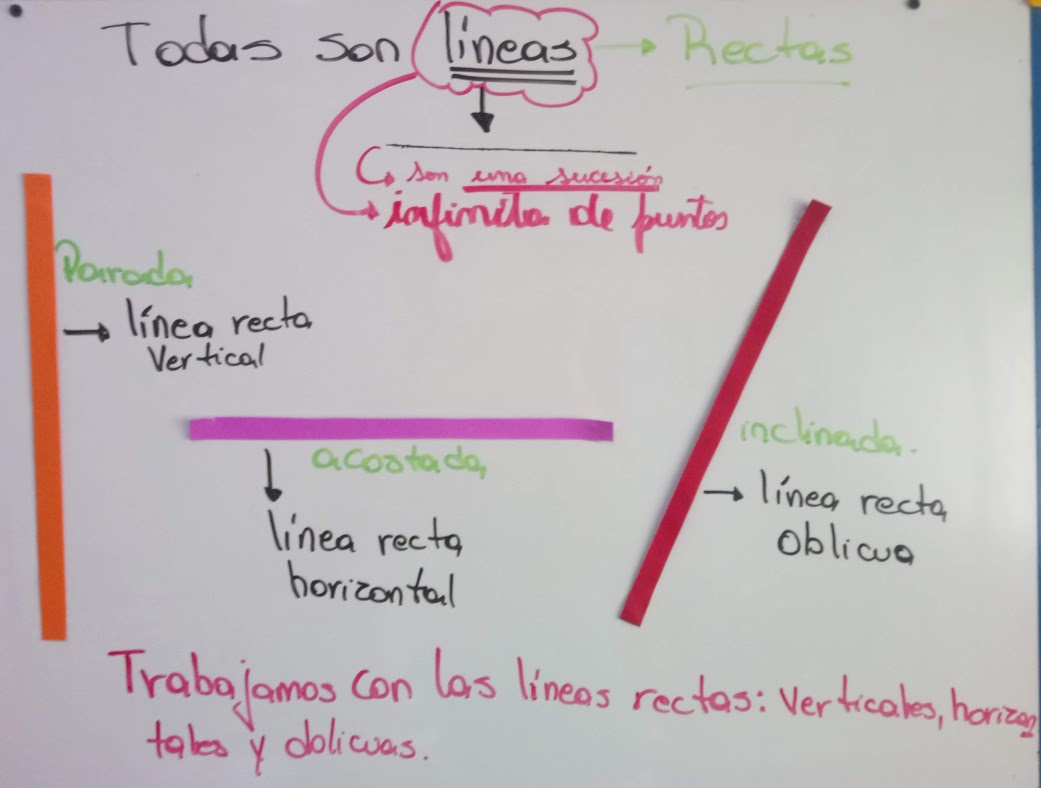 Todas son líneas → Rectas
son una sucesión
infinita de puntos
Parada
→ línea recta
vertical
acostada
línea recta
horizontal
inclinada.
→ línea recta
oblicua
Trabajamos con las líneas rectas: verticales, horizon
tales y oblicuas.